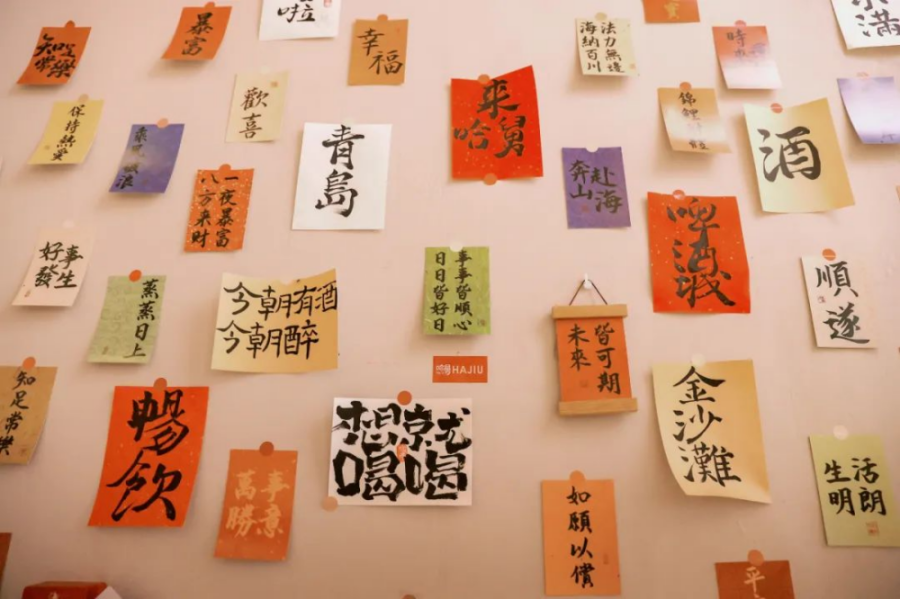 知足
常樂
暴富
啦
幸福
法力無邊
海納百川
保持熱愛
歡喜
青島
來
哈舅
錦鯉
酒
一夜暴富
八方来財
奔赴
山海
啤酒城
好事
發生
蒸蒸日上
今朝有酒
今朝醉
事事皆順心
日日皆好日
HAJIU
未來
皆可期
順遂
知足常樂
暢飲
萬事
勝意
想就
喝喝
金沙灘
如願以償
生活
明朗
平